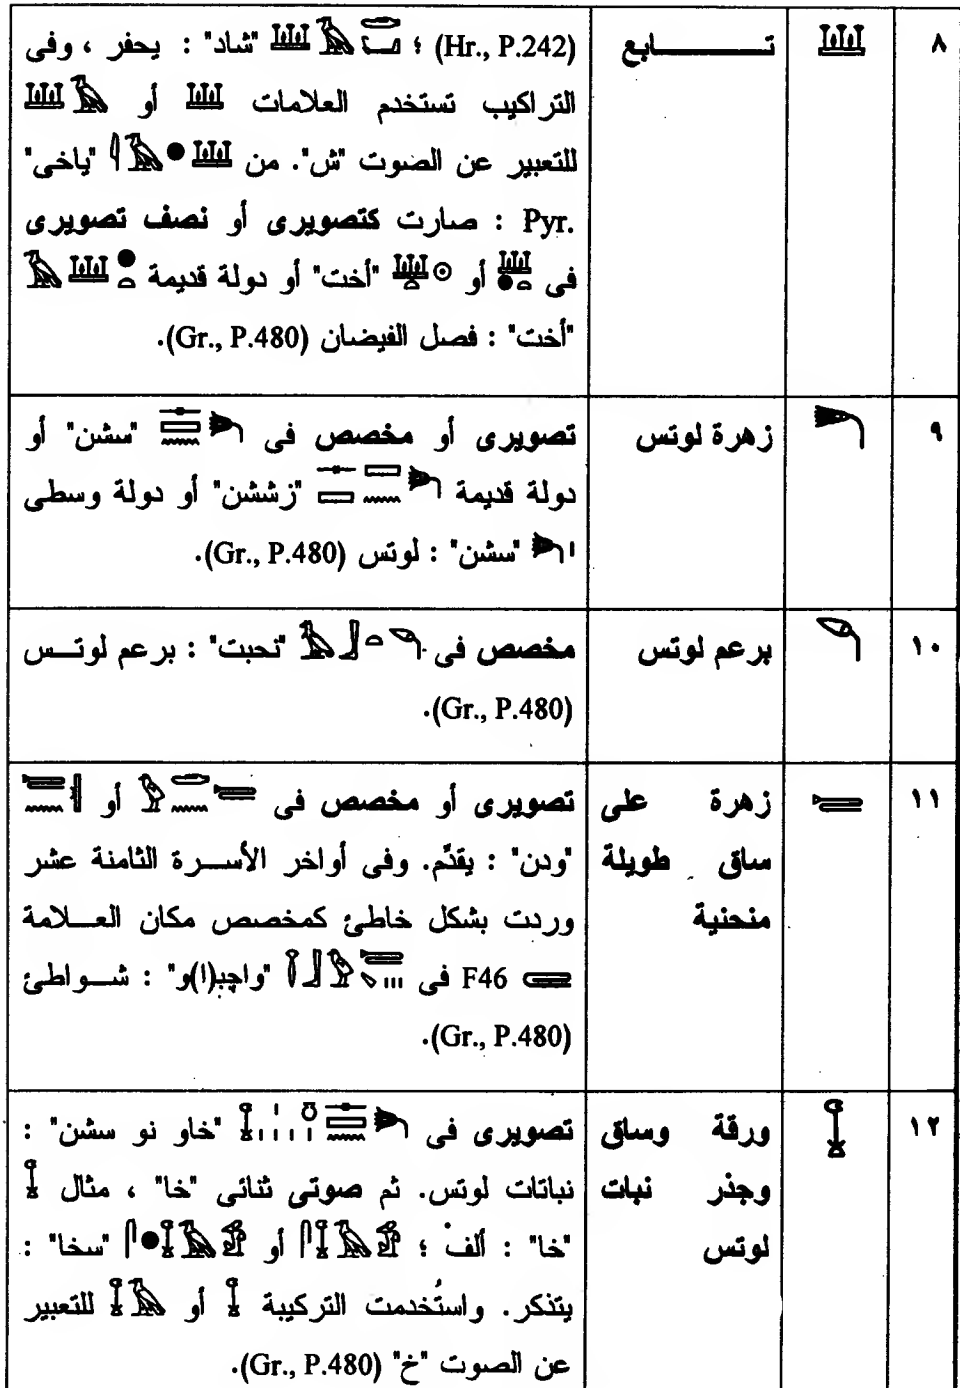 ٨
تابع
(Hr., P.242) ؛ "شاد" : يحفر ، وفى
التراكيب تستخدم العلامات أو
للتعبير عن الصوت "ش". من "ياخى"
Pyr. : صارت كتصويرى أو نصف تصويرى
فى أو "أخت" أو دولة قديمة
"أخت" : فصل الفيضان (Gr., P.480).
٩
زهرة لوتس
تصويرى أو مخصص فى "سشن" أو
دولة قديمة "زششن" أو دولة وسطى
"سشن" : لوتس (Gr., P.480).
١٠
برعم لوتس
مخصص فى "نحبت" : برعم لوتس
(Gr., P.480).
١١
زهرة على
ساق طويلة
منحنية
تصويرى أو مخصص فى أو
"ودن" : يقدّم. وفى أواخر الأسرة الثامنة عشر
وردت بشكل خاطئ كمخصص مكان العلامة
F46 فى "واجب(ا)و" : شواطئ
(Gr., P.480).
١٢
ورقة وساق
وجذر نبات
لوتس
تصويرى فى "خاو نو سشن" :
نباتات لوتس. ثم صوتى ثنائى "خا" ، مثال
"خا" : ألف ؛ أو "سخا" :
يتذكر. واستُخدمت التركيبة أو للتعبير
عن الصوت "خ" (Gr., P.480).